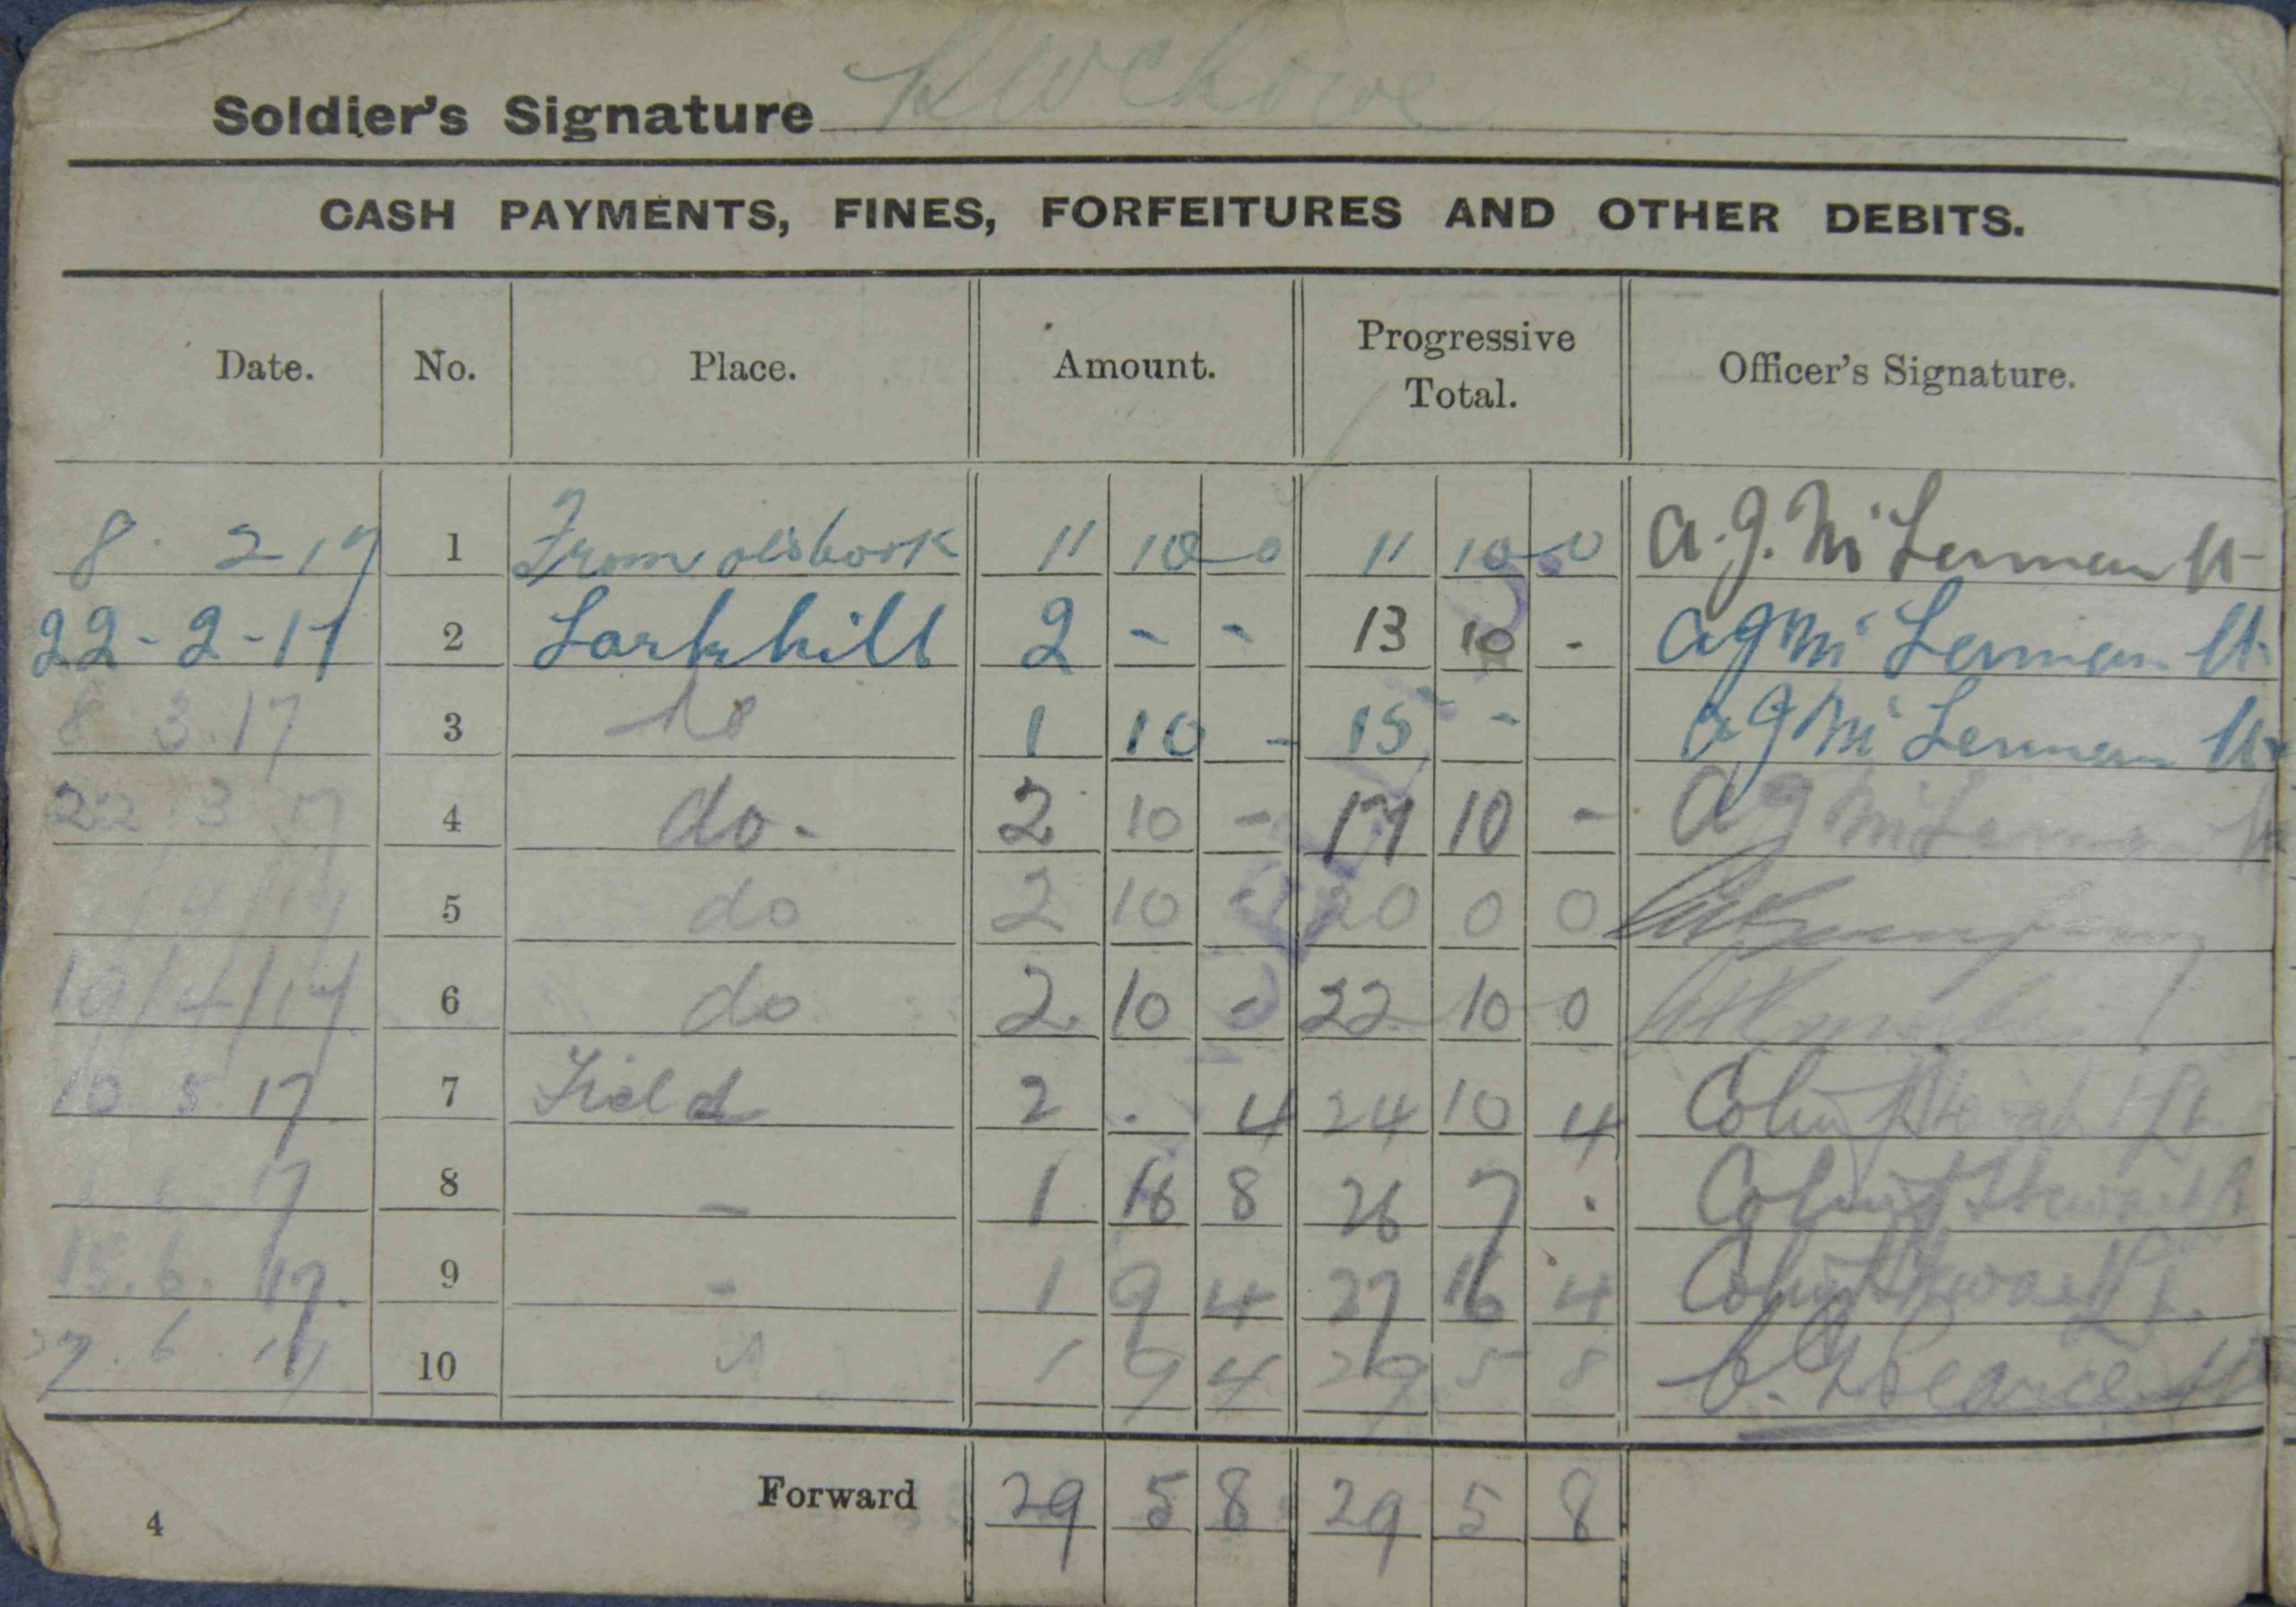 Soldier's Signature
CASH PAYMENTS, FINES, FORFEITURES AND OTHER DEBITS.
Date. No. Place. Amount. Progressive Total. Officer's Signature.
8. 2 17 1 From old book 11 10 0 11 10 0 A. G. Lt
22-2-17 2 Larkhill 2 - - 13 10 - A G Lt
8 3.17 3 do 1 10 - 15 - - A G Lt
22 3 17 4 do- 2 10 - 17 10 - A G
/4/17 5 do 2 10 - 20 0 0
19/4/17 6 do 2 10 - 22 10 0
10.5.17 7 Field 2 . 4 24 10 4 Colin Lt
6. 17 8 - 1 16 8 26 7 . Colin Stewart Lt
15.6.17. 9 - 1 9 4 27 16 4 Colin Stewart Lt.
27.6.17 10 1 9 4 29 5 8 Pearce Lt
Forward 29 5 8 29 5 8
4